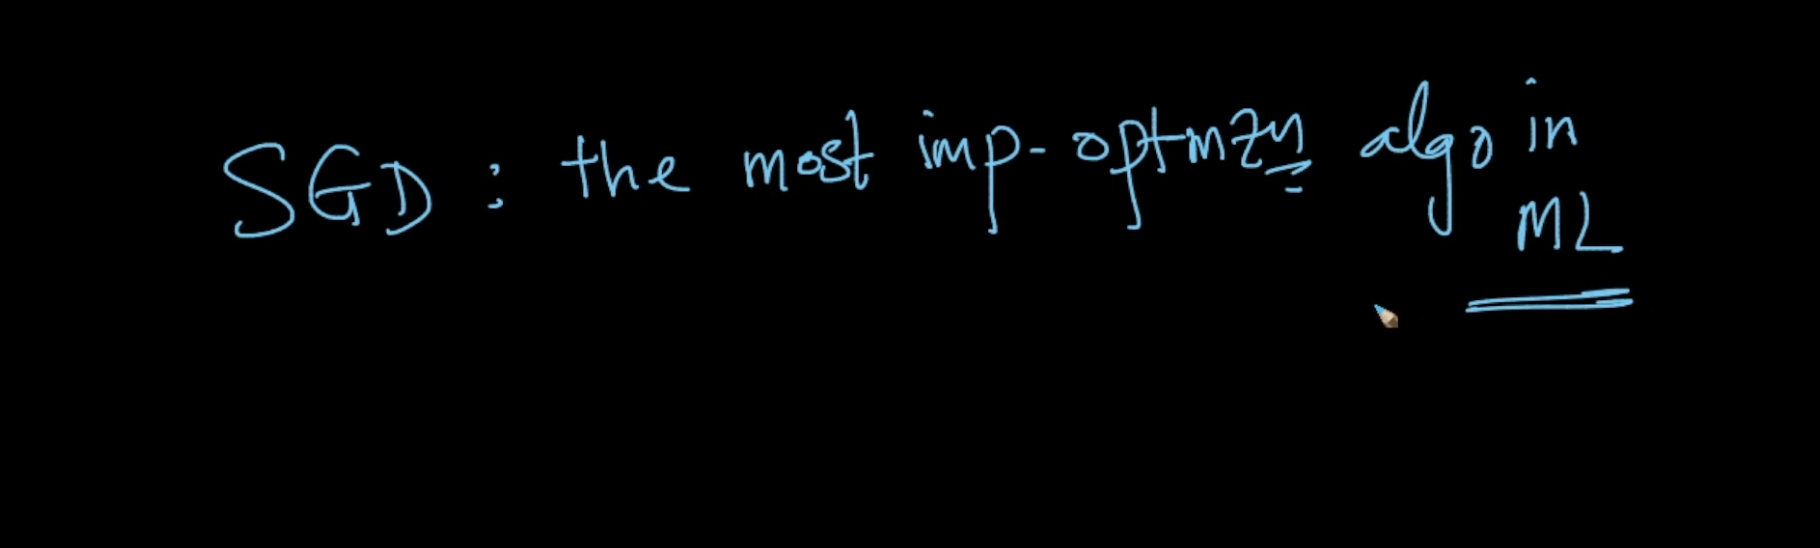 SGD : the most imp. optmzn algo in
ML